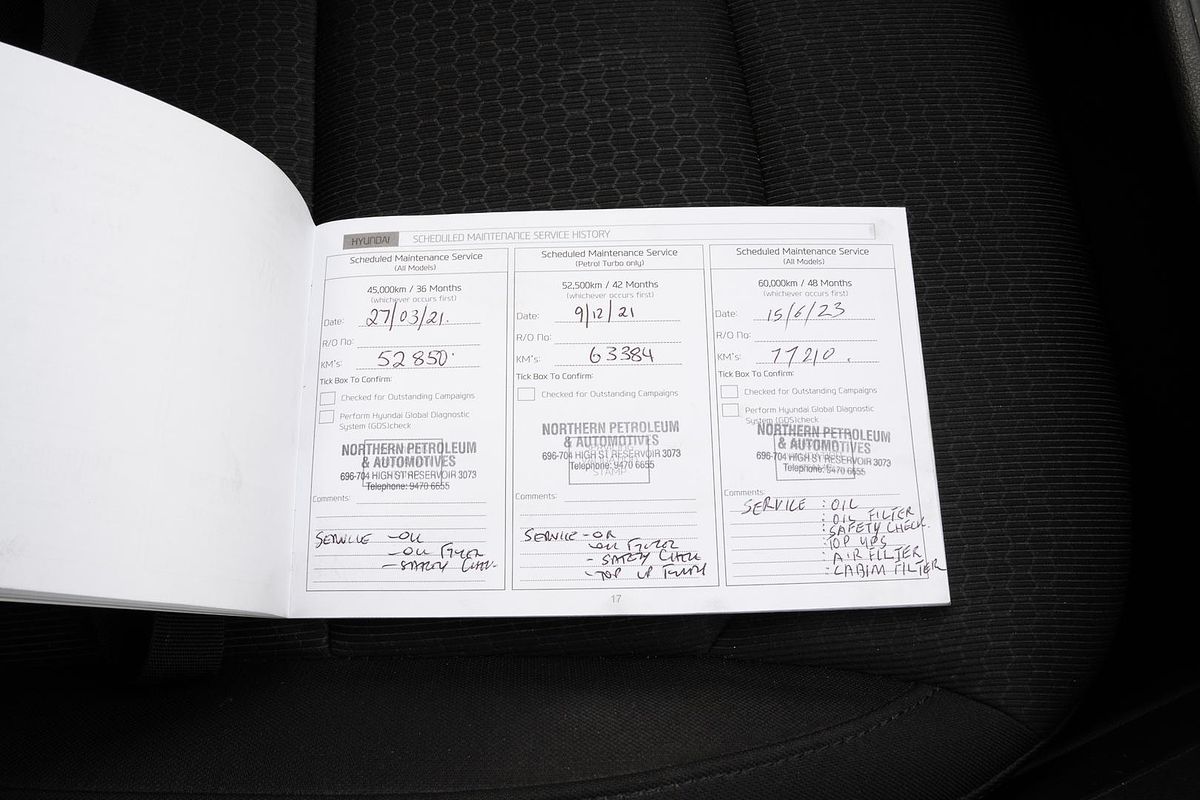 HYUNDAI SCHEDULED MAINTENANCE SERVICE HISTORY
Scheduled Maintenance Service
(All Models)
45,000km / 36 Months
(whichever occurs first)
Date: 27/03/21.
R/O No:
KM's: 52850
Tick Box To Confirm:
Checked for Outstanding Campaigns
Perform Hyundai Global Diagnostic
System (GDS)check
NORTHERN PETROLEUM
& AUTOMOTIVES
696-704 HIGH ST RESERVOIR 3073
Telephone: 9470 6655
Comments:
SERVICE - OIL
- OIL FILTER
- SAFETY CHECK
Scheduled Maintenance Service
(Petrol Turbo only)
52,500km / 42 Months
(whichever occurs first)
Date: 9/12/21
R/O No:
KM's: 63384
Tick Box To Confirm:
Checked for Outstanding Campaigns
NORTHERN PETROLEUM
& AUTOMOTIVES
696-704 HIGH ST RESERVOIR 3073
Telephone: 9470 6655
STAMP
Comments:
SERVICE - OIL
OIL FILTER
- SAFETY CHECK
- TOP UP FLUIDS
Scheduled Maintenance Service
(All Models)
60,000km / 48 Months
(whichever occurs first)
Date: 15/6/23
R/O No:
KM's: 77210.
Tick Box To Confirm:
Checked for Outstanding Campaigns
Perform Hyundai Global Diagnostic
System (GDS)check
NORTHERN PETROLEUM
& AUTOMOTIVES
696-704 HIGH ST RESERVOIR 3073
Telephone: 9470 6655
Comments:
SERVICE : OIL
: OIL FILTER
: SAFETY CHECK.
: TOP UPS
: AIR FILTER
: CABIM FILTER
17